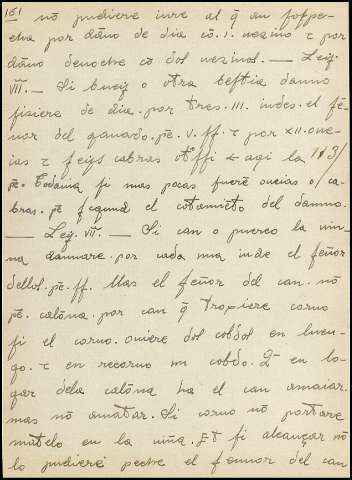 161 nō pudiere iure al q̄ su sospe-
cha por dāno de dia cō .i. uezino τ por
dāno denoche cō dos uezinos. — Ley.
VII. — Si buey o otra bestia danno
fiziere de dia. por tres .III. indes. el sē-
nor del ganado. pē. V. ss. τ por XII. oue-
ias τ seys cabras otssi
pē. Todauia si mas pocas fuerē oueias o/ ca-
bras. pē segund el cotamiēto del danno.
— Ley. VII. — Si can o puerco la uin-
na dannare. por cada una inde el señor
dellos. pē. ss. Mas el señor del can. nō
pē. calōna. por can q̄ tropiere corno
si el corno. ouiere dos cobdos en luen-
go. τ en retorno un cobdo. Q̄ en lo-
gar dela calōna ha el can amaiar.
mas nō amatar. Si corno nō portare
matelo en la uiña. Et si alcançar nō
lo pudiere peche el sennor del can